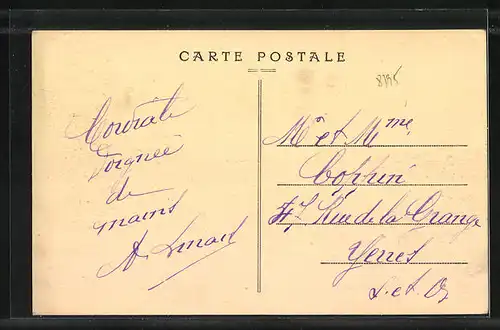 CARTE POSTALE
8795
Poignée
de
mains
Mr et Mme
Coppin
47, Rue de la Grange
Yerres
S. et O.